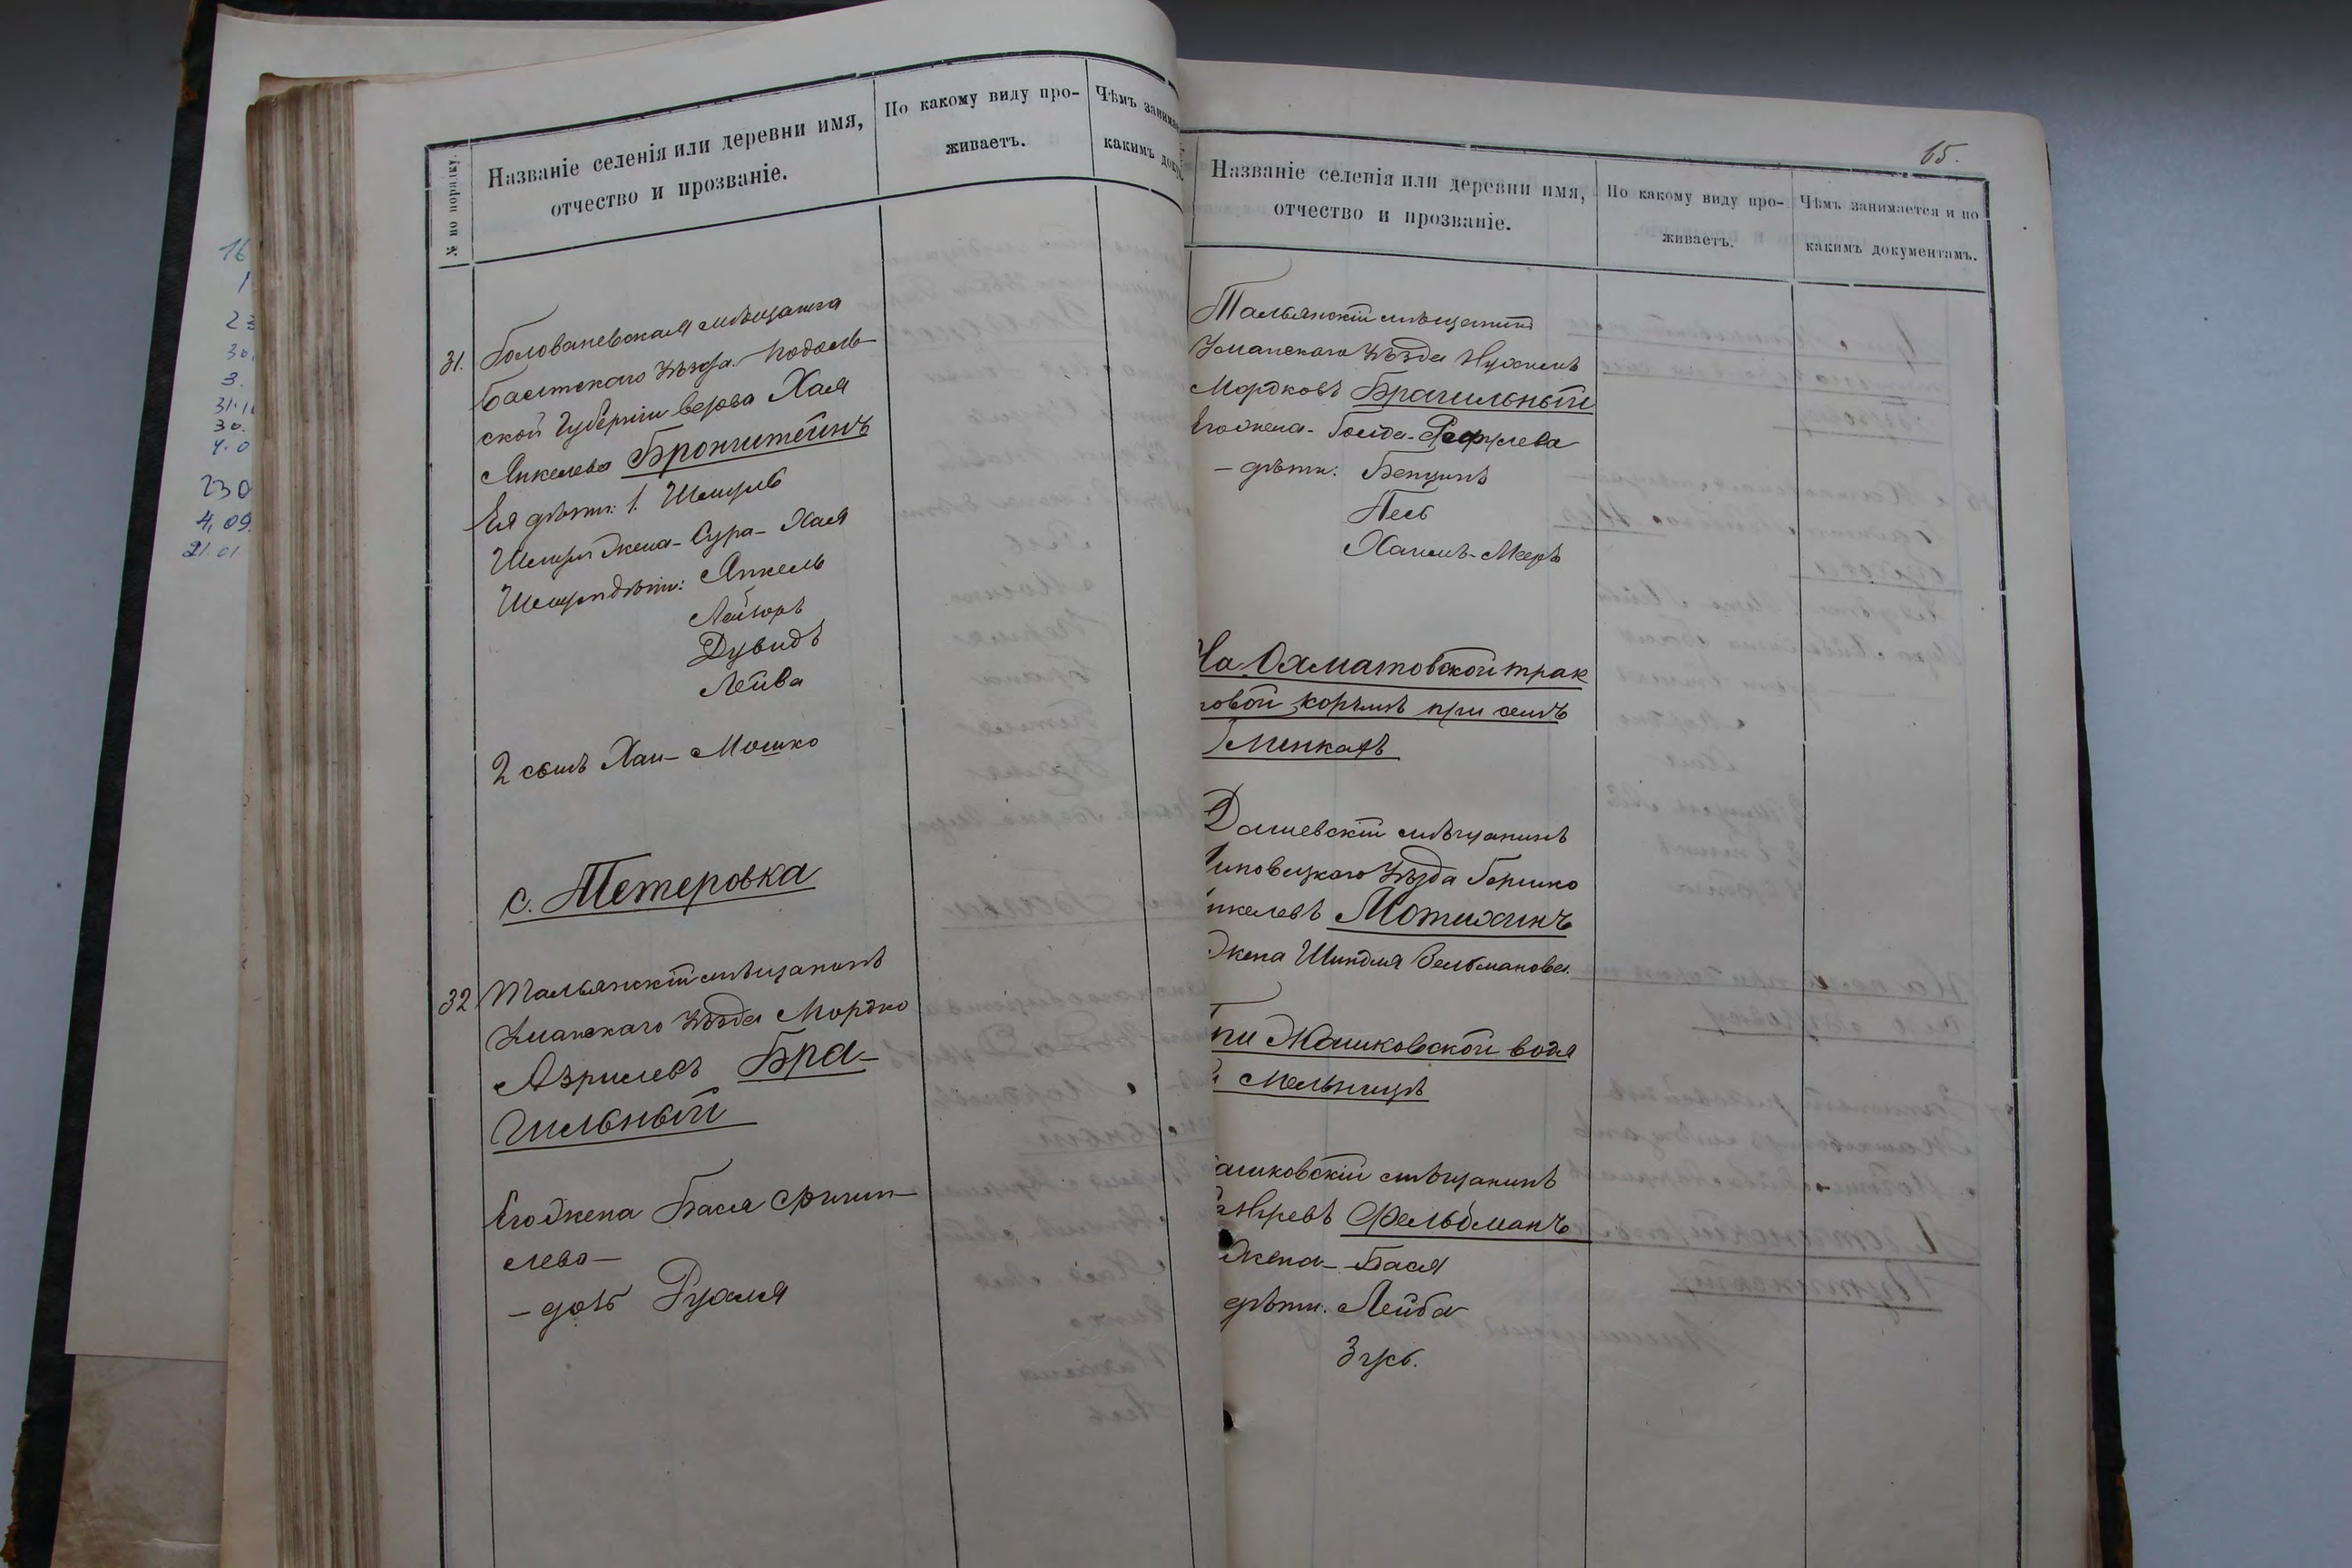 № по порядку.
Названіе селенія или деревни имя,
отчество и прозваніе.
По какому виду про-
живаетъ.
Чѣмъ занима
какимъ доку
31. Голованевская мѣщанка
Балтского Уѣзда Подоль-
ской Губерніи вдова Хая
Янкелева Бронштейнъ
Ея дѣти: 1. Шмуль
жена - Сура - Хая
дѣти: Янкель
Лейзоръ
Дувидъ
Лейва
2 сынъ Хаи - Мошко
с. Тетеровка
32 Тальянскій мѣщанинъ
Уманскаго Уѣзда Мордко
Азрилевъ Бра-
гильный
Его жена Бася
лева -
- дочь Рухля
15.
Названіе селенія или деревни имя,
отчество и прозваніе.
По какому виду про-
живаетъ.
Чѣмъ занимается и по
какимъ документамъ.
Тальянскій мѣщанинъ
Уманскаго Уѣзда Нухимъ
Мордковъ Брагильный
Его жена - Голда -
- дѣти: Бенционъ
Песь
Хаимъ - Мееръ
На Охматовской трак
товой корчмѣ при селѣ
Дашевскій мѣщанинъ
Липовецкаго Уѣзда Гершко
Мотихинъ
жена Шиндля Вельмановa
при Машковской водя
мельницѣ
ашковскій мѣщанинъ
Фельдманъ
жена - Бася
дѣти. Лейба
16
1
23
30.
3.
31.1
30.
4.0
230
4.09.
21.01